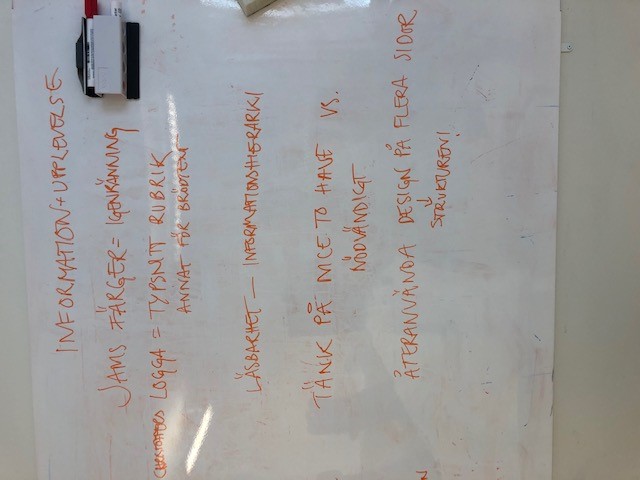 INFORMATION + UPPLEVELSE
JAMS FÄRGER = IGENKÄNNING
LOGGA = TYPSNITT RUBRIK
ANNAT FÖR BRÖDTEXT
LÄSBARHET — INFORMATIONSHIERARKI
TÄNK PÅ NICE TO HAVE VS.
NÖDVÄNDIGT
ÅTERANVÄNDA DESIGN PÅ FLERA SIDOR
↓
STRUKTUREN!